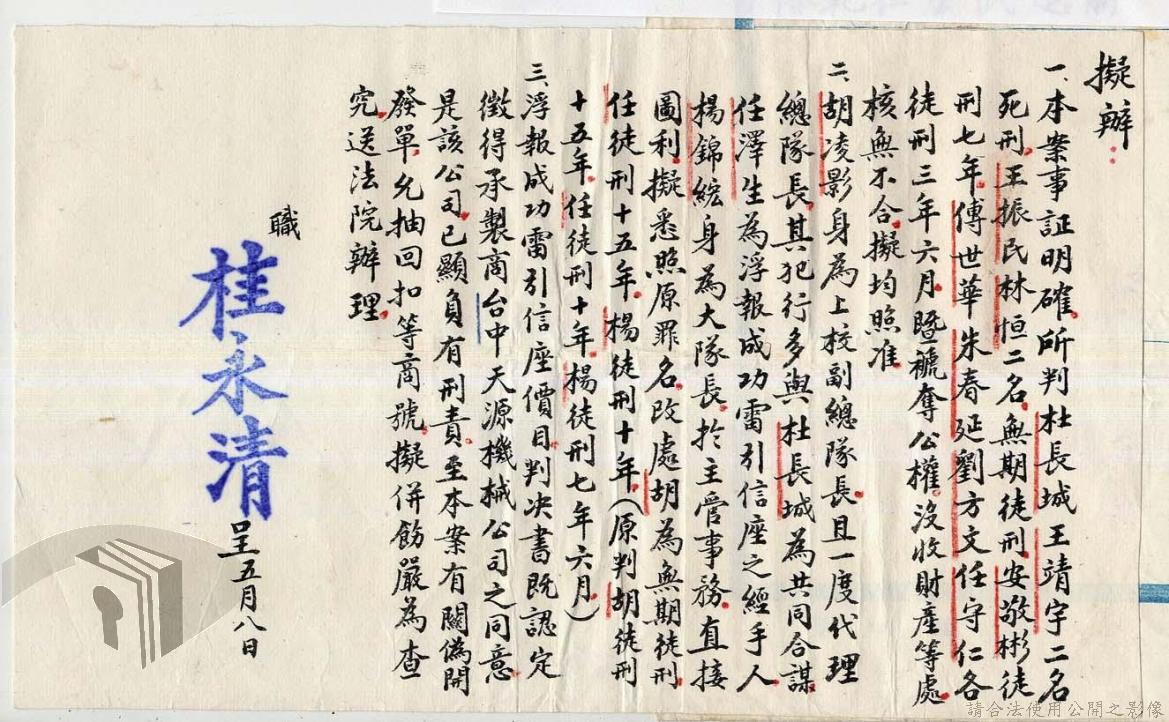 擬辦：
一、本案事証明確，所判杜長城王靖宇二名
死刑，王振民林恒二名，無期徒刑，安敬彬徒
刑七年，傅世華朱春延劉方文任守仁各
徒刑三年六月，暨褫奪公權，沒收財產等處，
核無不合，擬均照准。
二、胡凌影身為上校副總隊長，且一度代理
總隊長，其犯行多與杜長城為共同合謀，
任澤生為浮報成功雷引信座之經手人，
楊錦綋身為大隊長，於主管事務，直接
圖利，擬悉照原罪名，改處胡為無期徒刑，
任徒刑十五年，楊徒刑十年，（原判胡徒刑
十五年，任徒刑十年，楊徒刑七年六月。）
三、浮報成功雷引信座價目，判決書既認定
徵得承製商台中天源機械公司之同意，
是該公司，已顯負有刑責，至本案有關偽開
發單，允抽回扣等商號，擬併飭嚴為查
究，送法院辦理。
職
桂永清
呈五月八日
請合法使用公開之影像